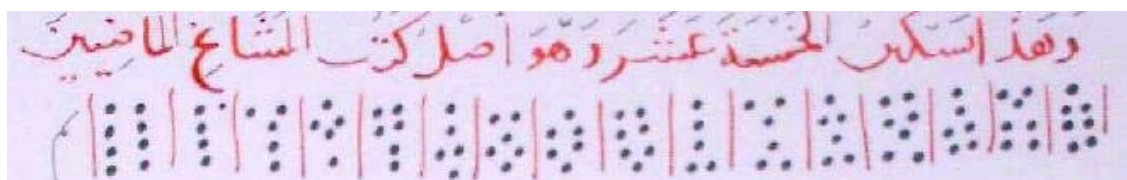 وهذا تسكين الخمسة عشر وهو اصل كتب المشائخ الماضيين